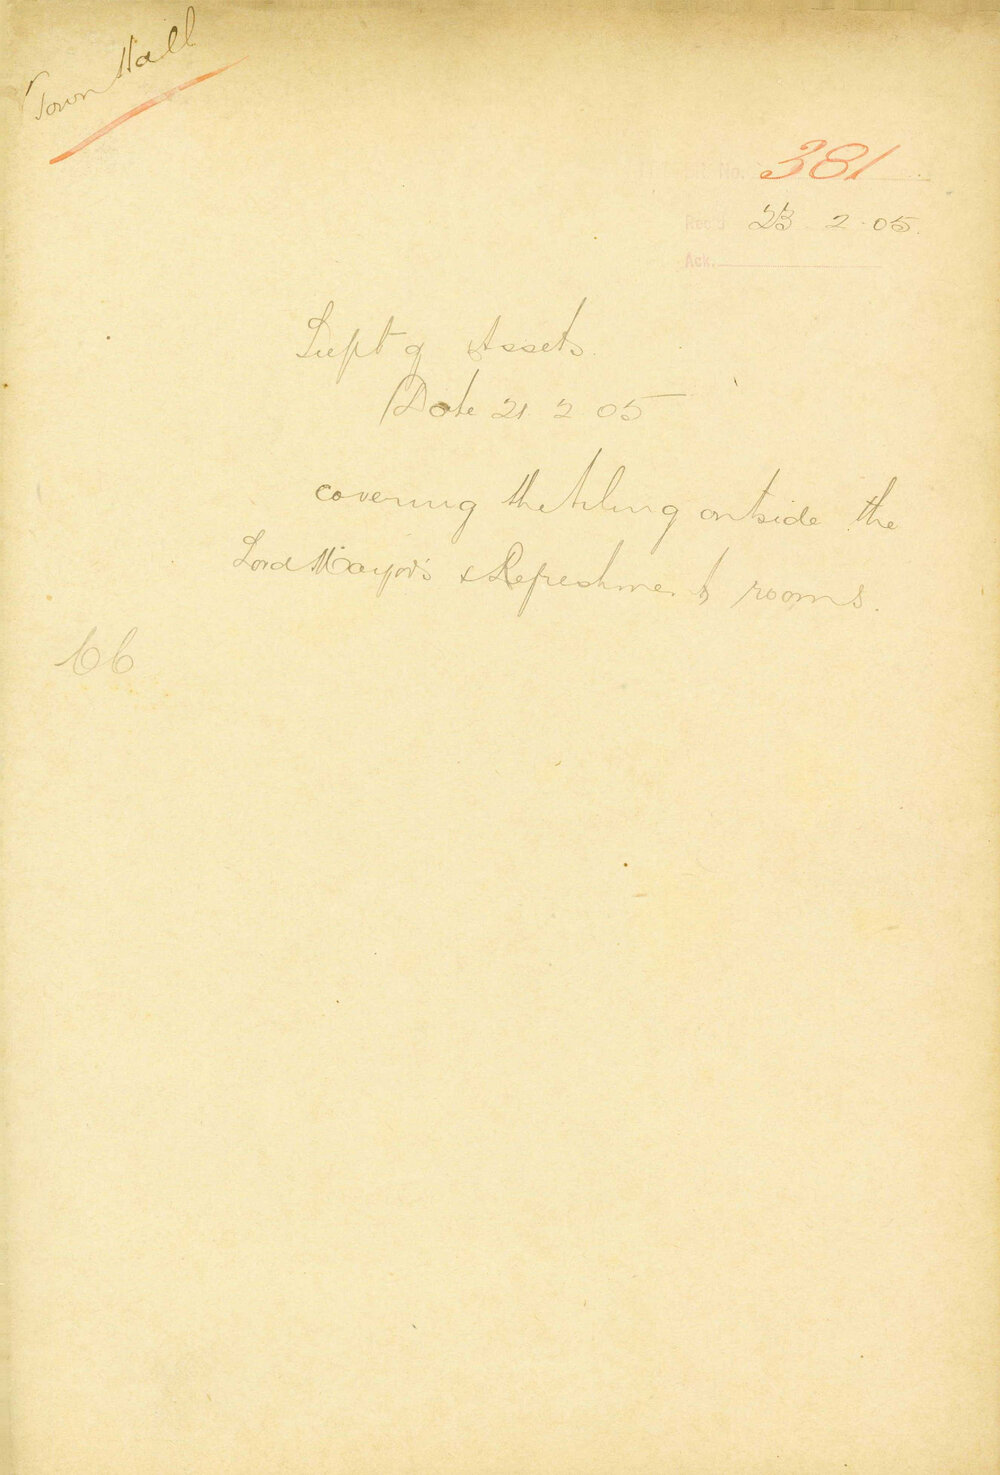 Town Hall
No. 381
Rec'd 23. 2. 05.
Ack.
Supt of Assets.
Date 21. 2 05
covering the tiling outside the
Lord Mayor's & Refreshment rooms.